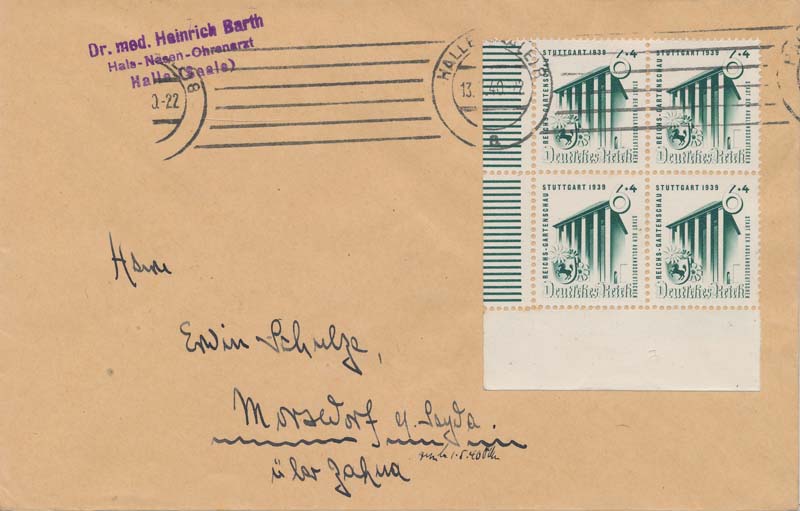 Dr. med. Heinrich Barth
Hals-Nasen-Ohrenarzt
Halle (Saale)
8
0-22
HALLE (SAALE) 8
13. 40
a
STUTTGART 1939 6+4
REICHS-GARTENSCHAU
STADT DER AUSLANDSDEUTSCHEN
Deutsches Reich
STUTTGART 1939 6+4
REICHS-GARTENSCHAU
STADT DER AUSLANDSDEUTSCHEN
Deutsches Reich
STUTTGART 1939 6+4
REICHS-GARTENSCHAU
STADT DER AUSLANDSDEUTSCHEN
Deutsches Reich
STUTTGART 1939 6+4
REICHS-GARTENSCHAU
STADT DER AUSLANDSDEUTSCHEN
Deutsches Reich
Herrn
Erwin Schulze,
Morxdorf b. Seyda.
über Zahna